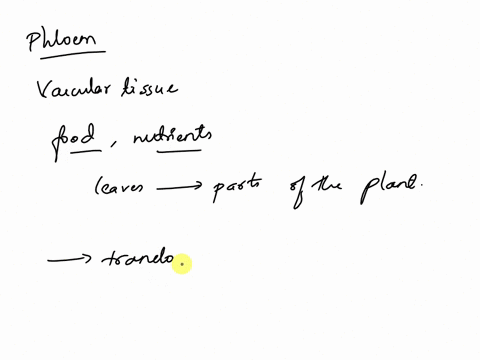 Phloem
Vascular tissue
food, nutrients
leaves → parts of the plant.
→ translo